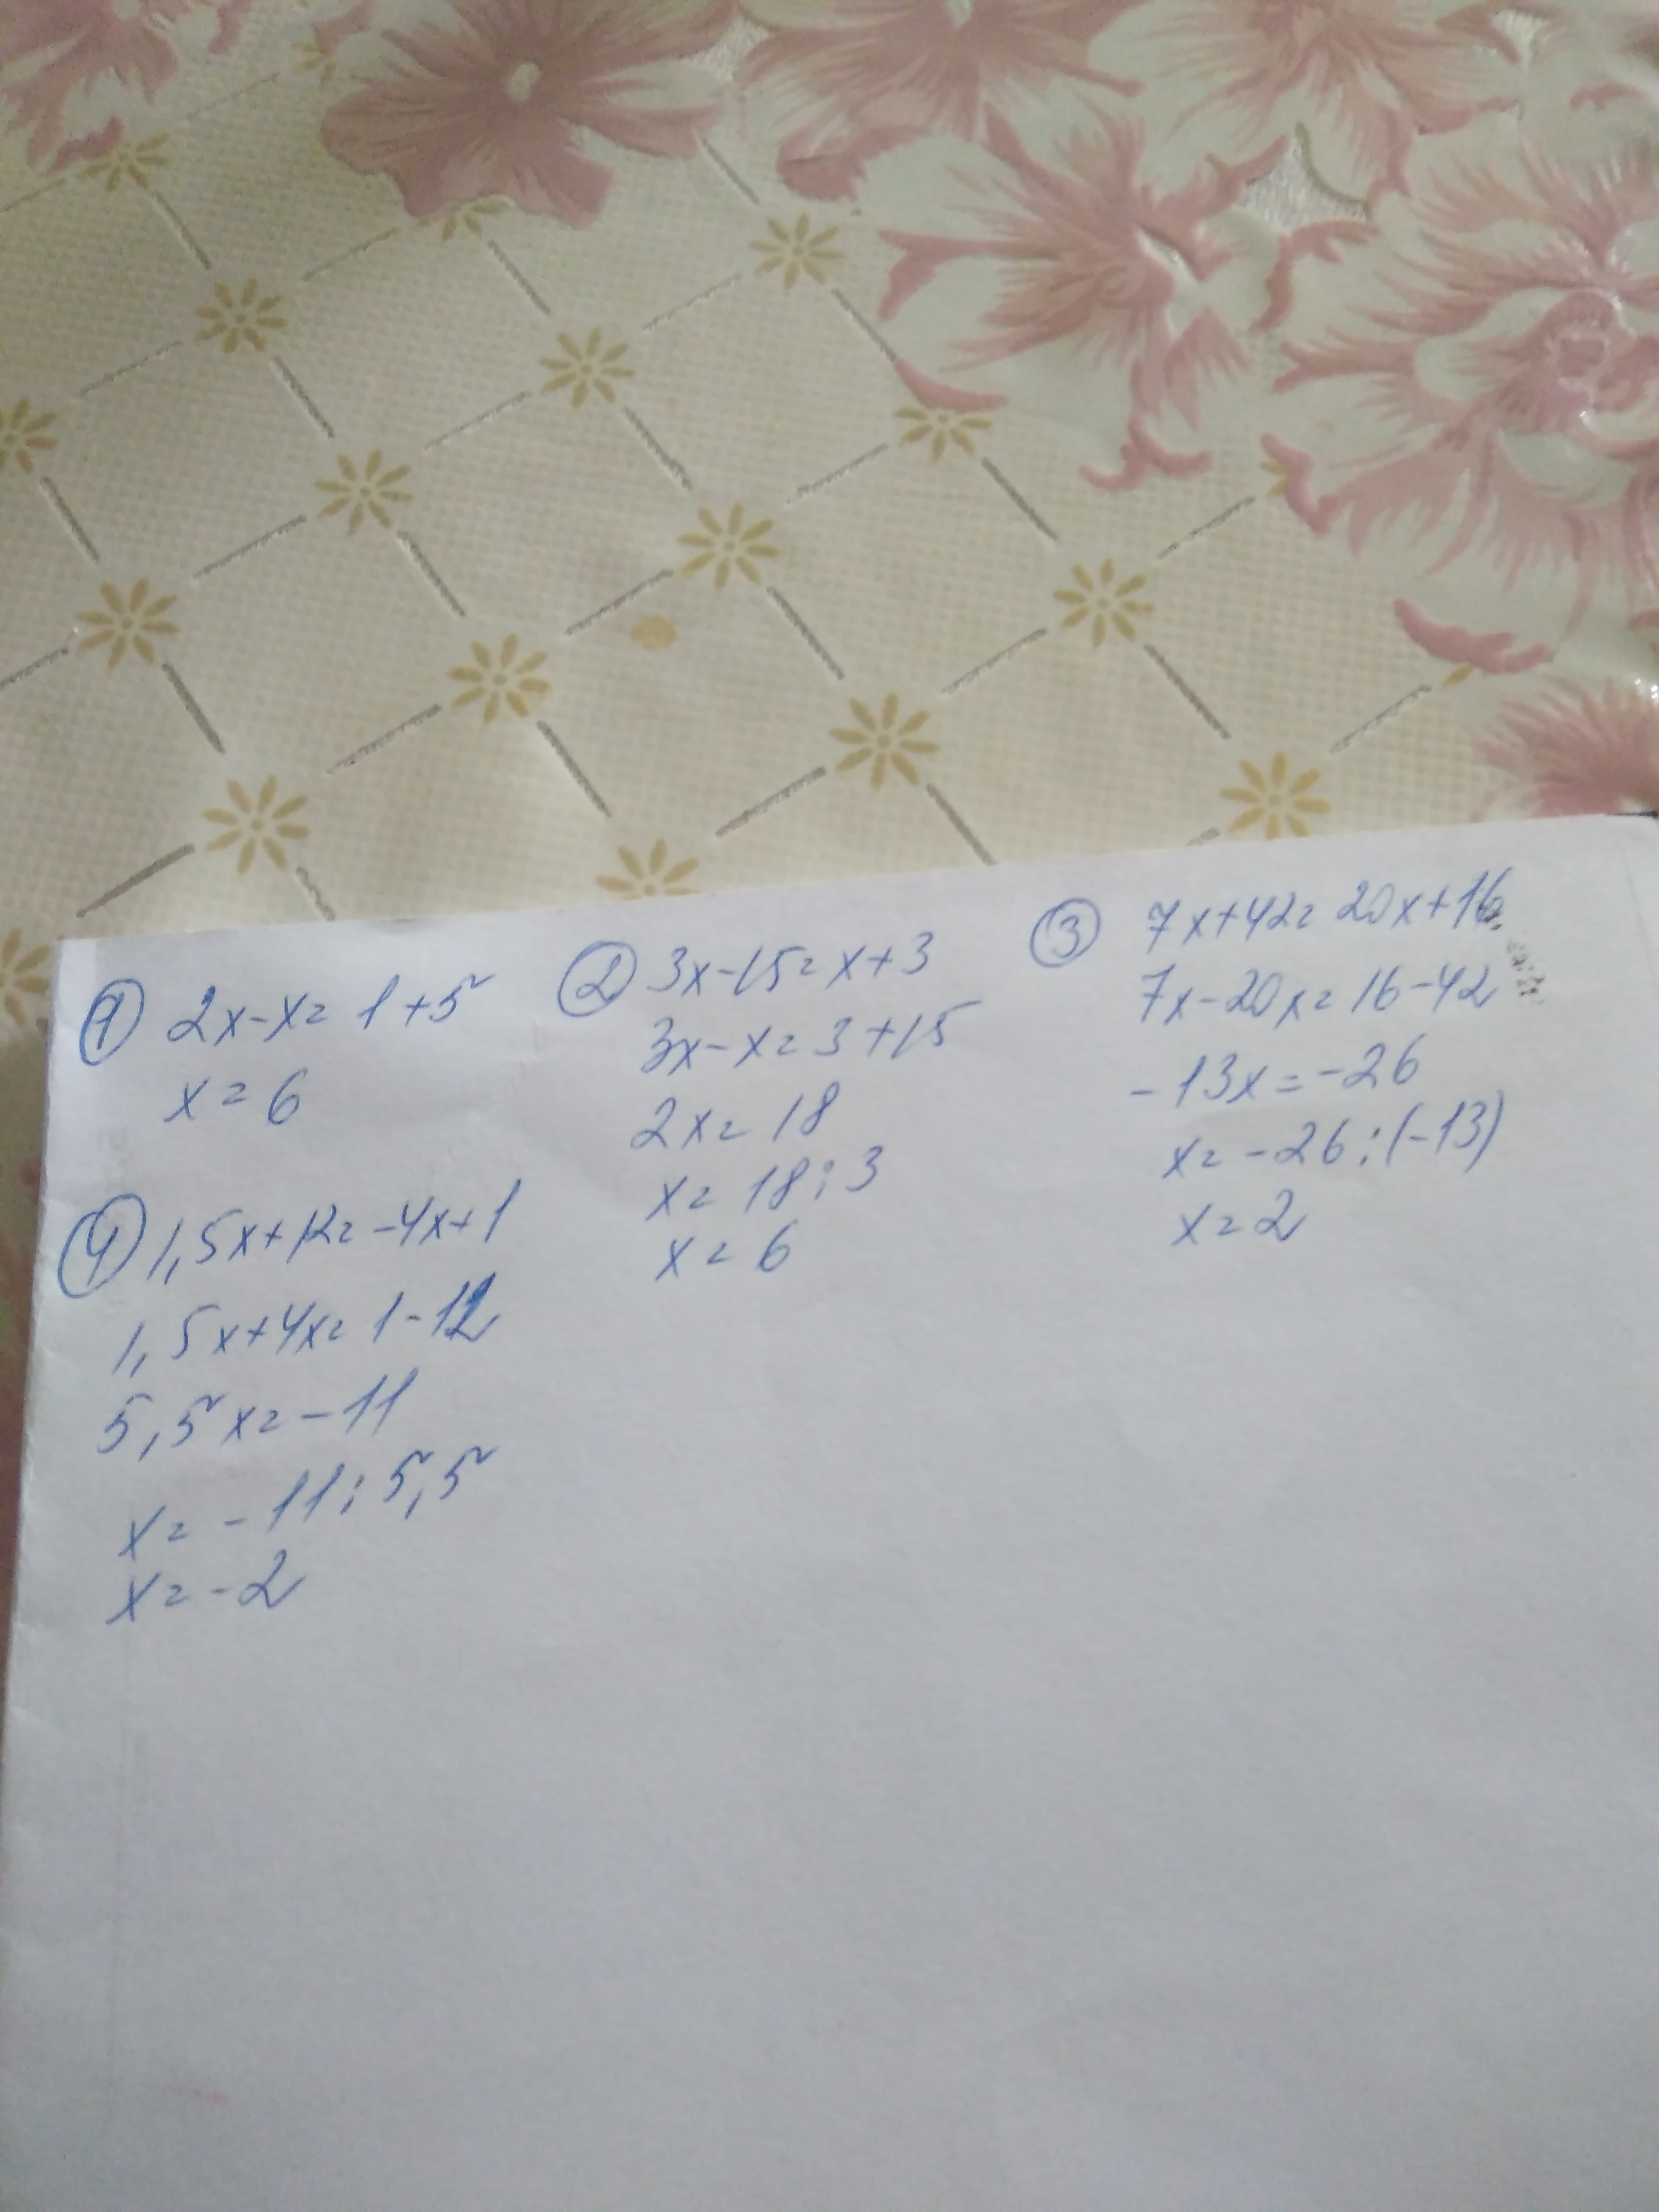 ① 2x-x=1+5
x=6
② 3x-15=x+3
3x-x=3+15
2x=18
x=18:3
x=6
③ 7x+42=20x+16
7x-20x=16-42
-13x=-26
x=-26:(-13)
x=2
④ 1,5x+12=-4x+1
1,5x+4x=1-12
5,5x=-11
x=-11:5,5
x=-2